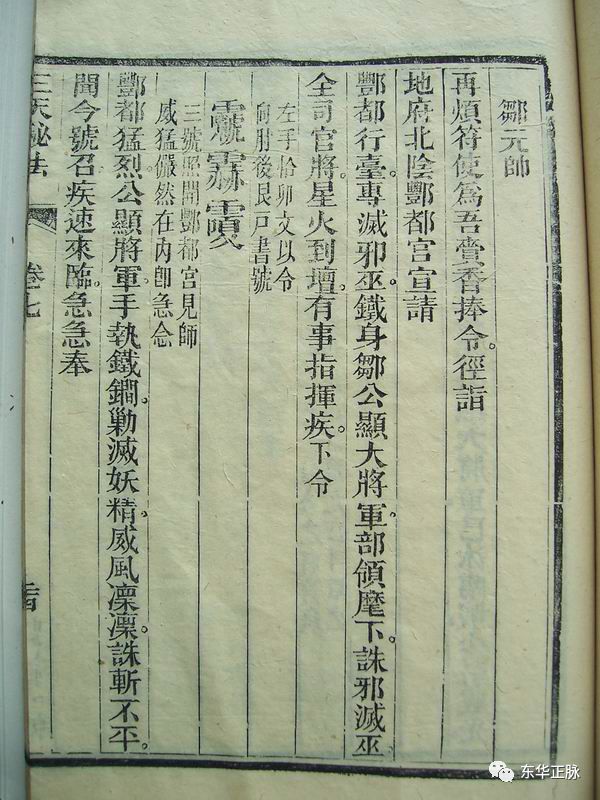 鄒元帥
再煩符使爲吾賫香捧令。徑詣
地府北陰酆都宮宣請
酆都行臺。專滅邪巫。鐵身鄒公顯大將軍。部領麾下。誅邪滅巫
全司官將。星火到壇。有事指揮。疾下令
左手掐卯文以令
向肘後艮戸書號
三號照開酆都宮見師
威猛儼然在內卽急念
酆都猛烈。公顯將軍。手執鐵鐧。勦滅妖精。威風凜凜。誅斬不平。
聞今號召。疾速來臨。急急奉
三天秘法
卷七
东华正脉